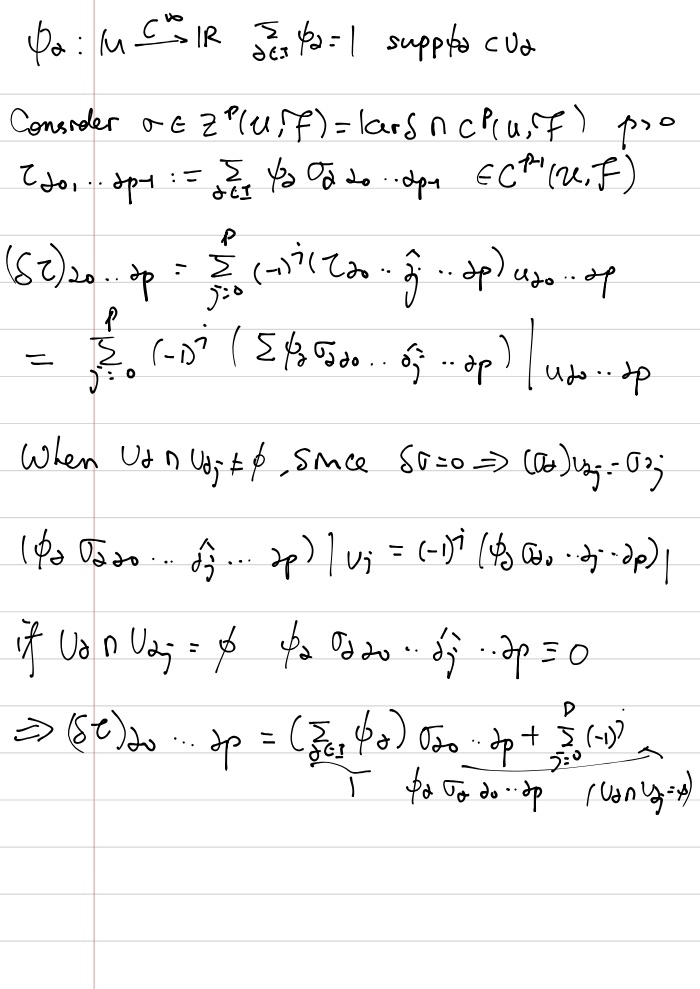 ψ_α : M →^{C^∞} ℝ   Σ_{α∈I} ψ_α = 1   supp ψ_α ⊂ U_α
Consider σ ∈ Z^p(U, F) = ker δ ∩ C^p(U, F)   p>0
τ_{α0,...αp-1} := Σ_{α∈I} ψ_α σ_{α α0...αp-1}   ∈ C^{p-1}(U, F)
(δτ)_{α0...αp} = Σ_{j=0}^{p} (-1)^j (τ_{α0..α̂_j...αp}) U_{α0...αp}
= Σ_{j=0}^{p} (-1)^j ( Σ ψ_α σ_{α α0...α̂_j...αp} ) | U_{α0...αp}
When U_α ∩ U_{αj} ≠ φ, since δσ=0 ⇒ (σ_α)_{U_{αj}} = σ_{αj}
(ψ_α σ_{α α0...α̂_j...αp}) | U_j = (-1)^j (ψ_α σ_{α0...αj...αp}) |
if U_α ∩ U_{αj} = φ   ψ_α σ_{α α0...α̂_j...αp} ≡ 0
⇒ (δτ)_{α0...αp} = (Σ_{α∈I} ψ_α) σ_{α0...αp} + Σ_{j=0}^{p} (-1)^j
1   ψ_α σ_{α α0...αp}   (U_α ∩ U_{αj} = φ)